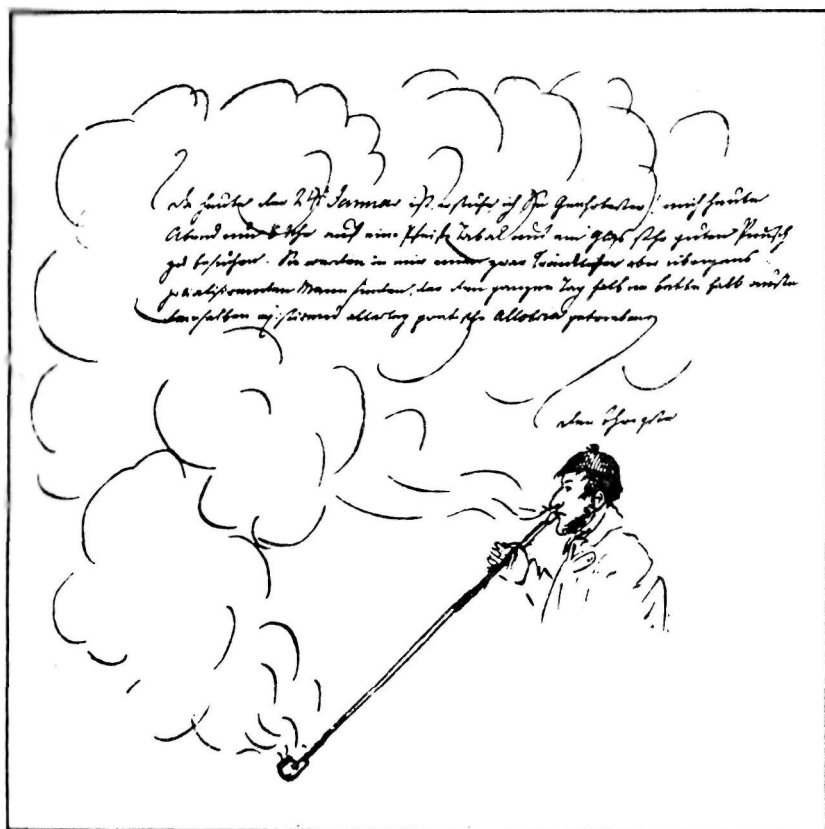 Da heute der 24t Januar ist, ersuche ich Sie Geehrtester! mich heute
Abend um 8 Uhr auf eine Pfeife Tabak und ein Glas sehr guten Punsch
zu besuchen. Sie werden in mir einen zwar kränklichen aber übrigens
Mann finden, der den ganzen Tag halb im Bette halb außer
demselben allerley poetische Allotria getrieben
Der Ihrigste